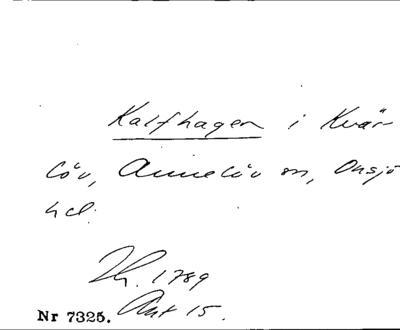 Kalfhagen i Kvär-
löv, Annelöv sn, Onsjö
hd.
Th. 1789
Akt 15.
Nr 7325.